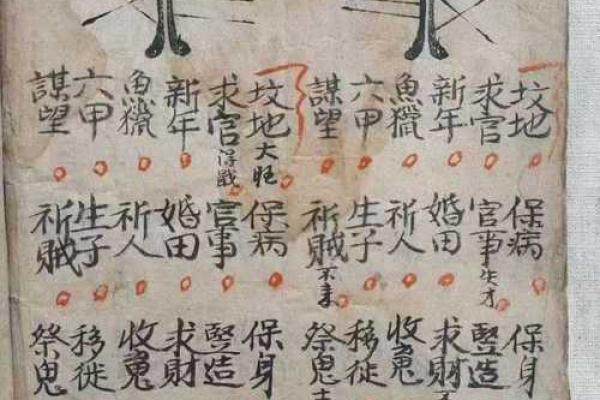 坟地 保病 保身
求官 官事失才 竪造
新年 婚田 求財
魚獵 祈人 收
六甲 生子 移徙
謀望 祈賊不来 祭鬼
坟地大旺 保病 保身
求官 官事 竪造
新年 婚田 求財
魚獵 祈人 收
六甲 生子 移徙
謀望 祈賊 祭鬼